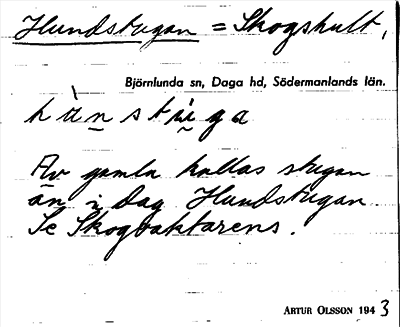 Hundstugan = Skogshult,
Björnlunda sn, Daga hd, Södermanlands län.
hùnstúga
Av gamla kallas stugan
än i dag Hundstugan.
Se Skogvaktarens.
ARTUR OLSSON 1943